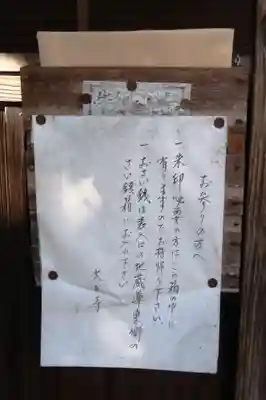 お参りの方へ
一 朱印必要の方はこの箱の中に
有りますのでお持帰り下さい。
一 おさい銭は表入口の地蔵尊東側の
さい銭箱にお入れ下さい。